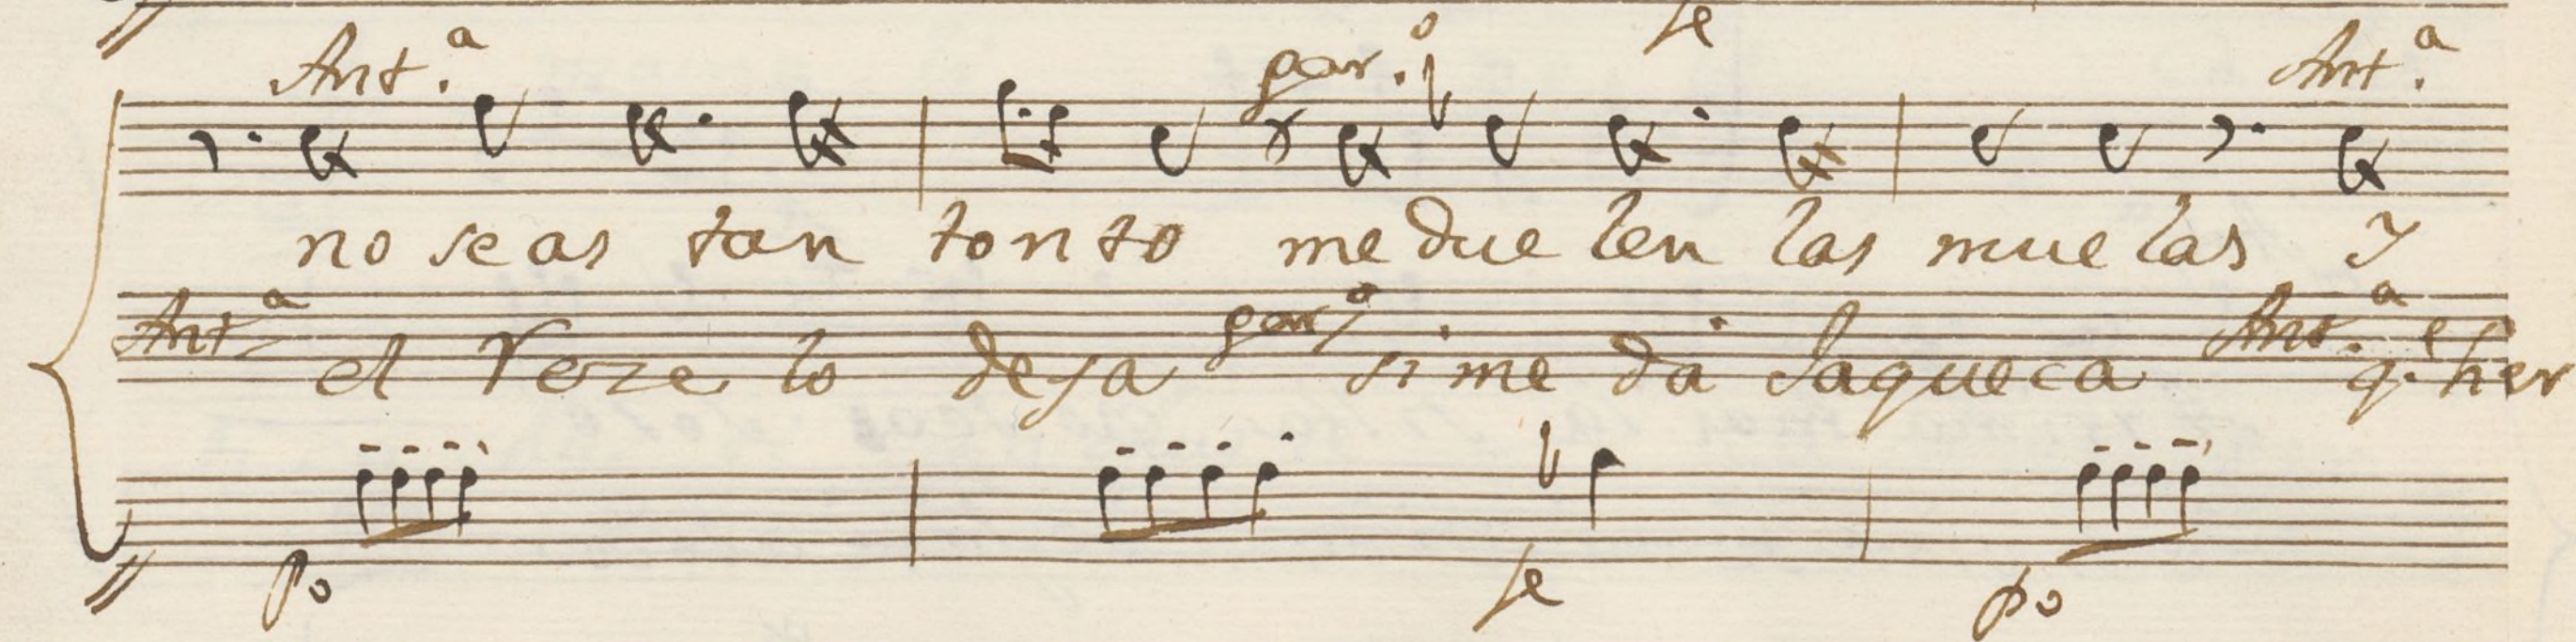 fe
Ant.ª par.º Ant.ª
no seas tan tonto me duelen las muelas y
Antª el Rezelo deja parº si me dà Jaqueca Ant.ª q.e her
po fe po